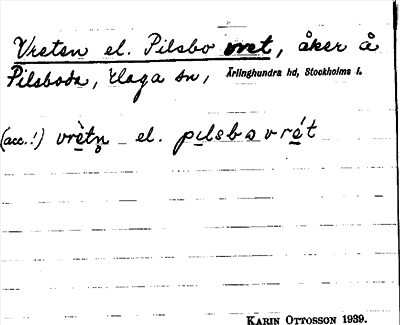 Vreten el. Pilsbo vret, åker å
Pilsboda, Haga sn, Ärlinghundra hd, Stockholms l.
(acc.!) vrètn̥ el. pilsbovrét
KARIN OTTOSSON 1939.